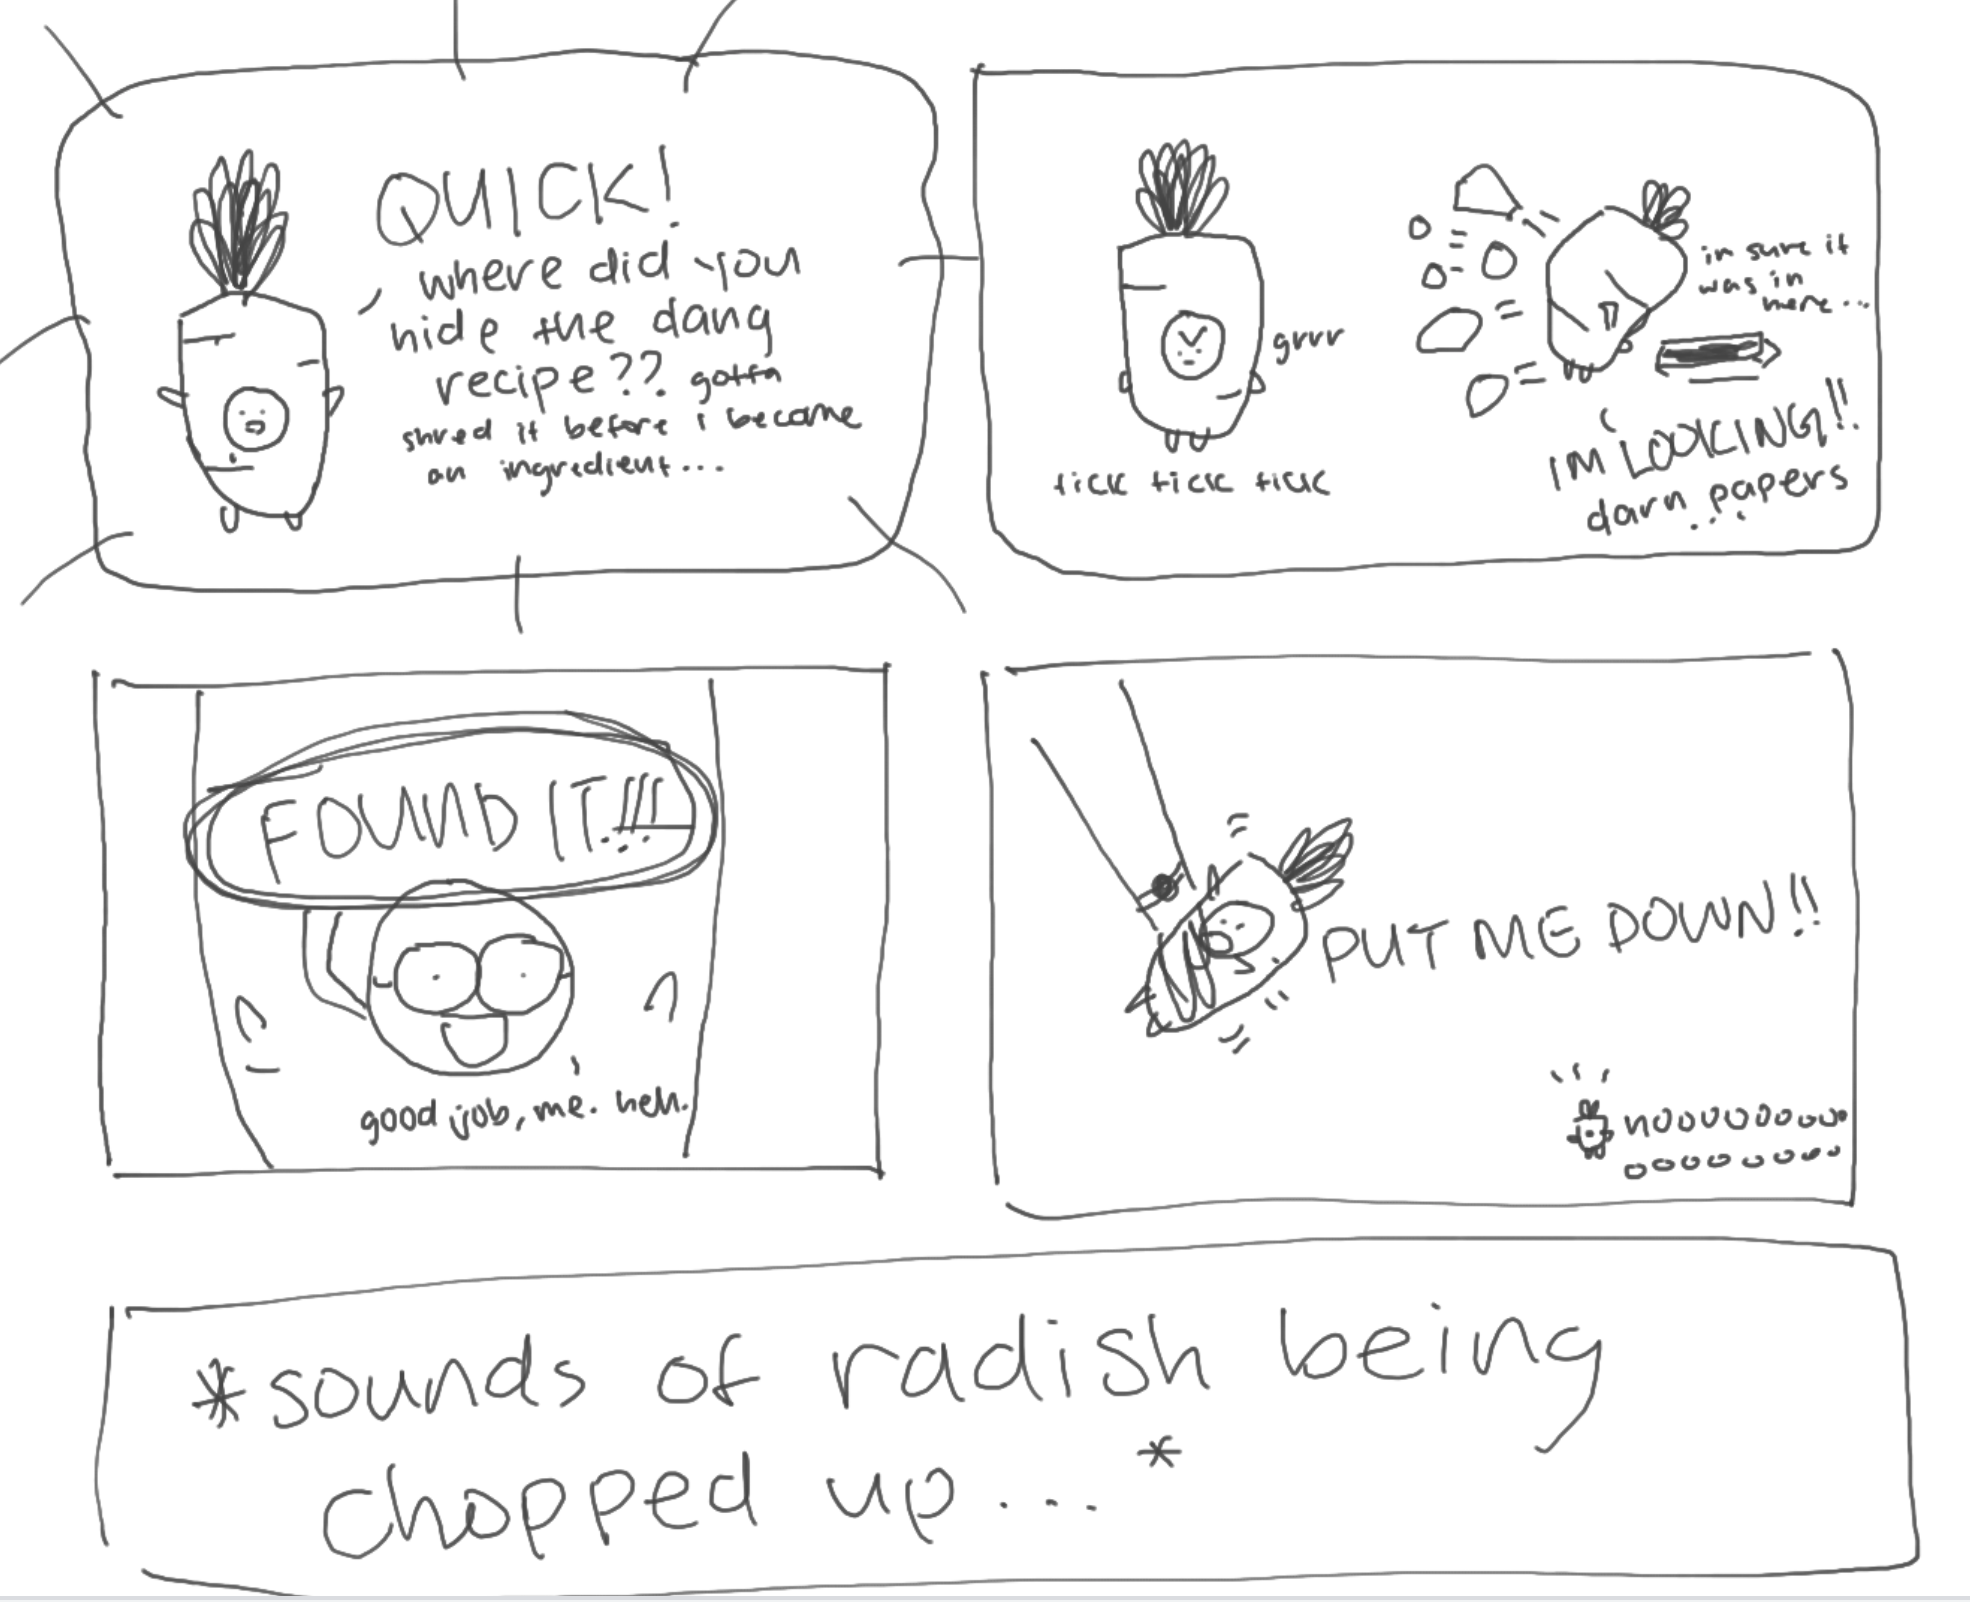 QUICK!
where did you
hide the dang
recipe?? gotta
shred it before i become
an ingredient...
grrr
tick tick tick
im sure it
was in
here...
IM LOOKING!!
darn papers
...
FOUND IT!!!
good job, me. heh.
PUT ME DOWN!!
nooooooooo
oooooooo
*sounds of radish being
chopped up...*